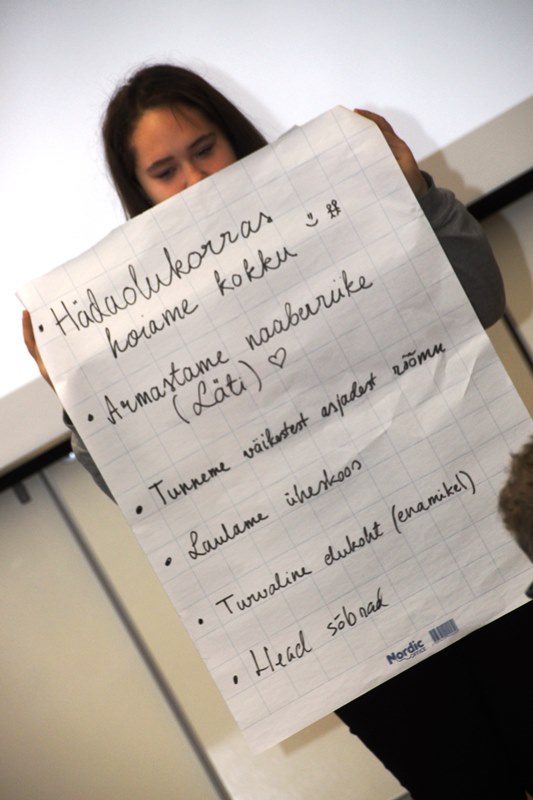 • Hädaolukorras
hoiame kokku
• Armastame naaberriike
(Läti) ♡
• Tunneme väikestest asjadest rõõmu
• Laulame üheskoos
• Turvaline elukoht (enamikel)
• Head sõbrad
Nordic
office